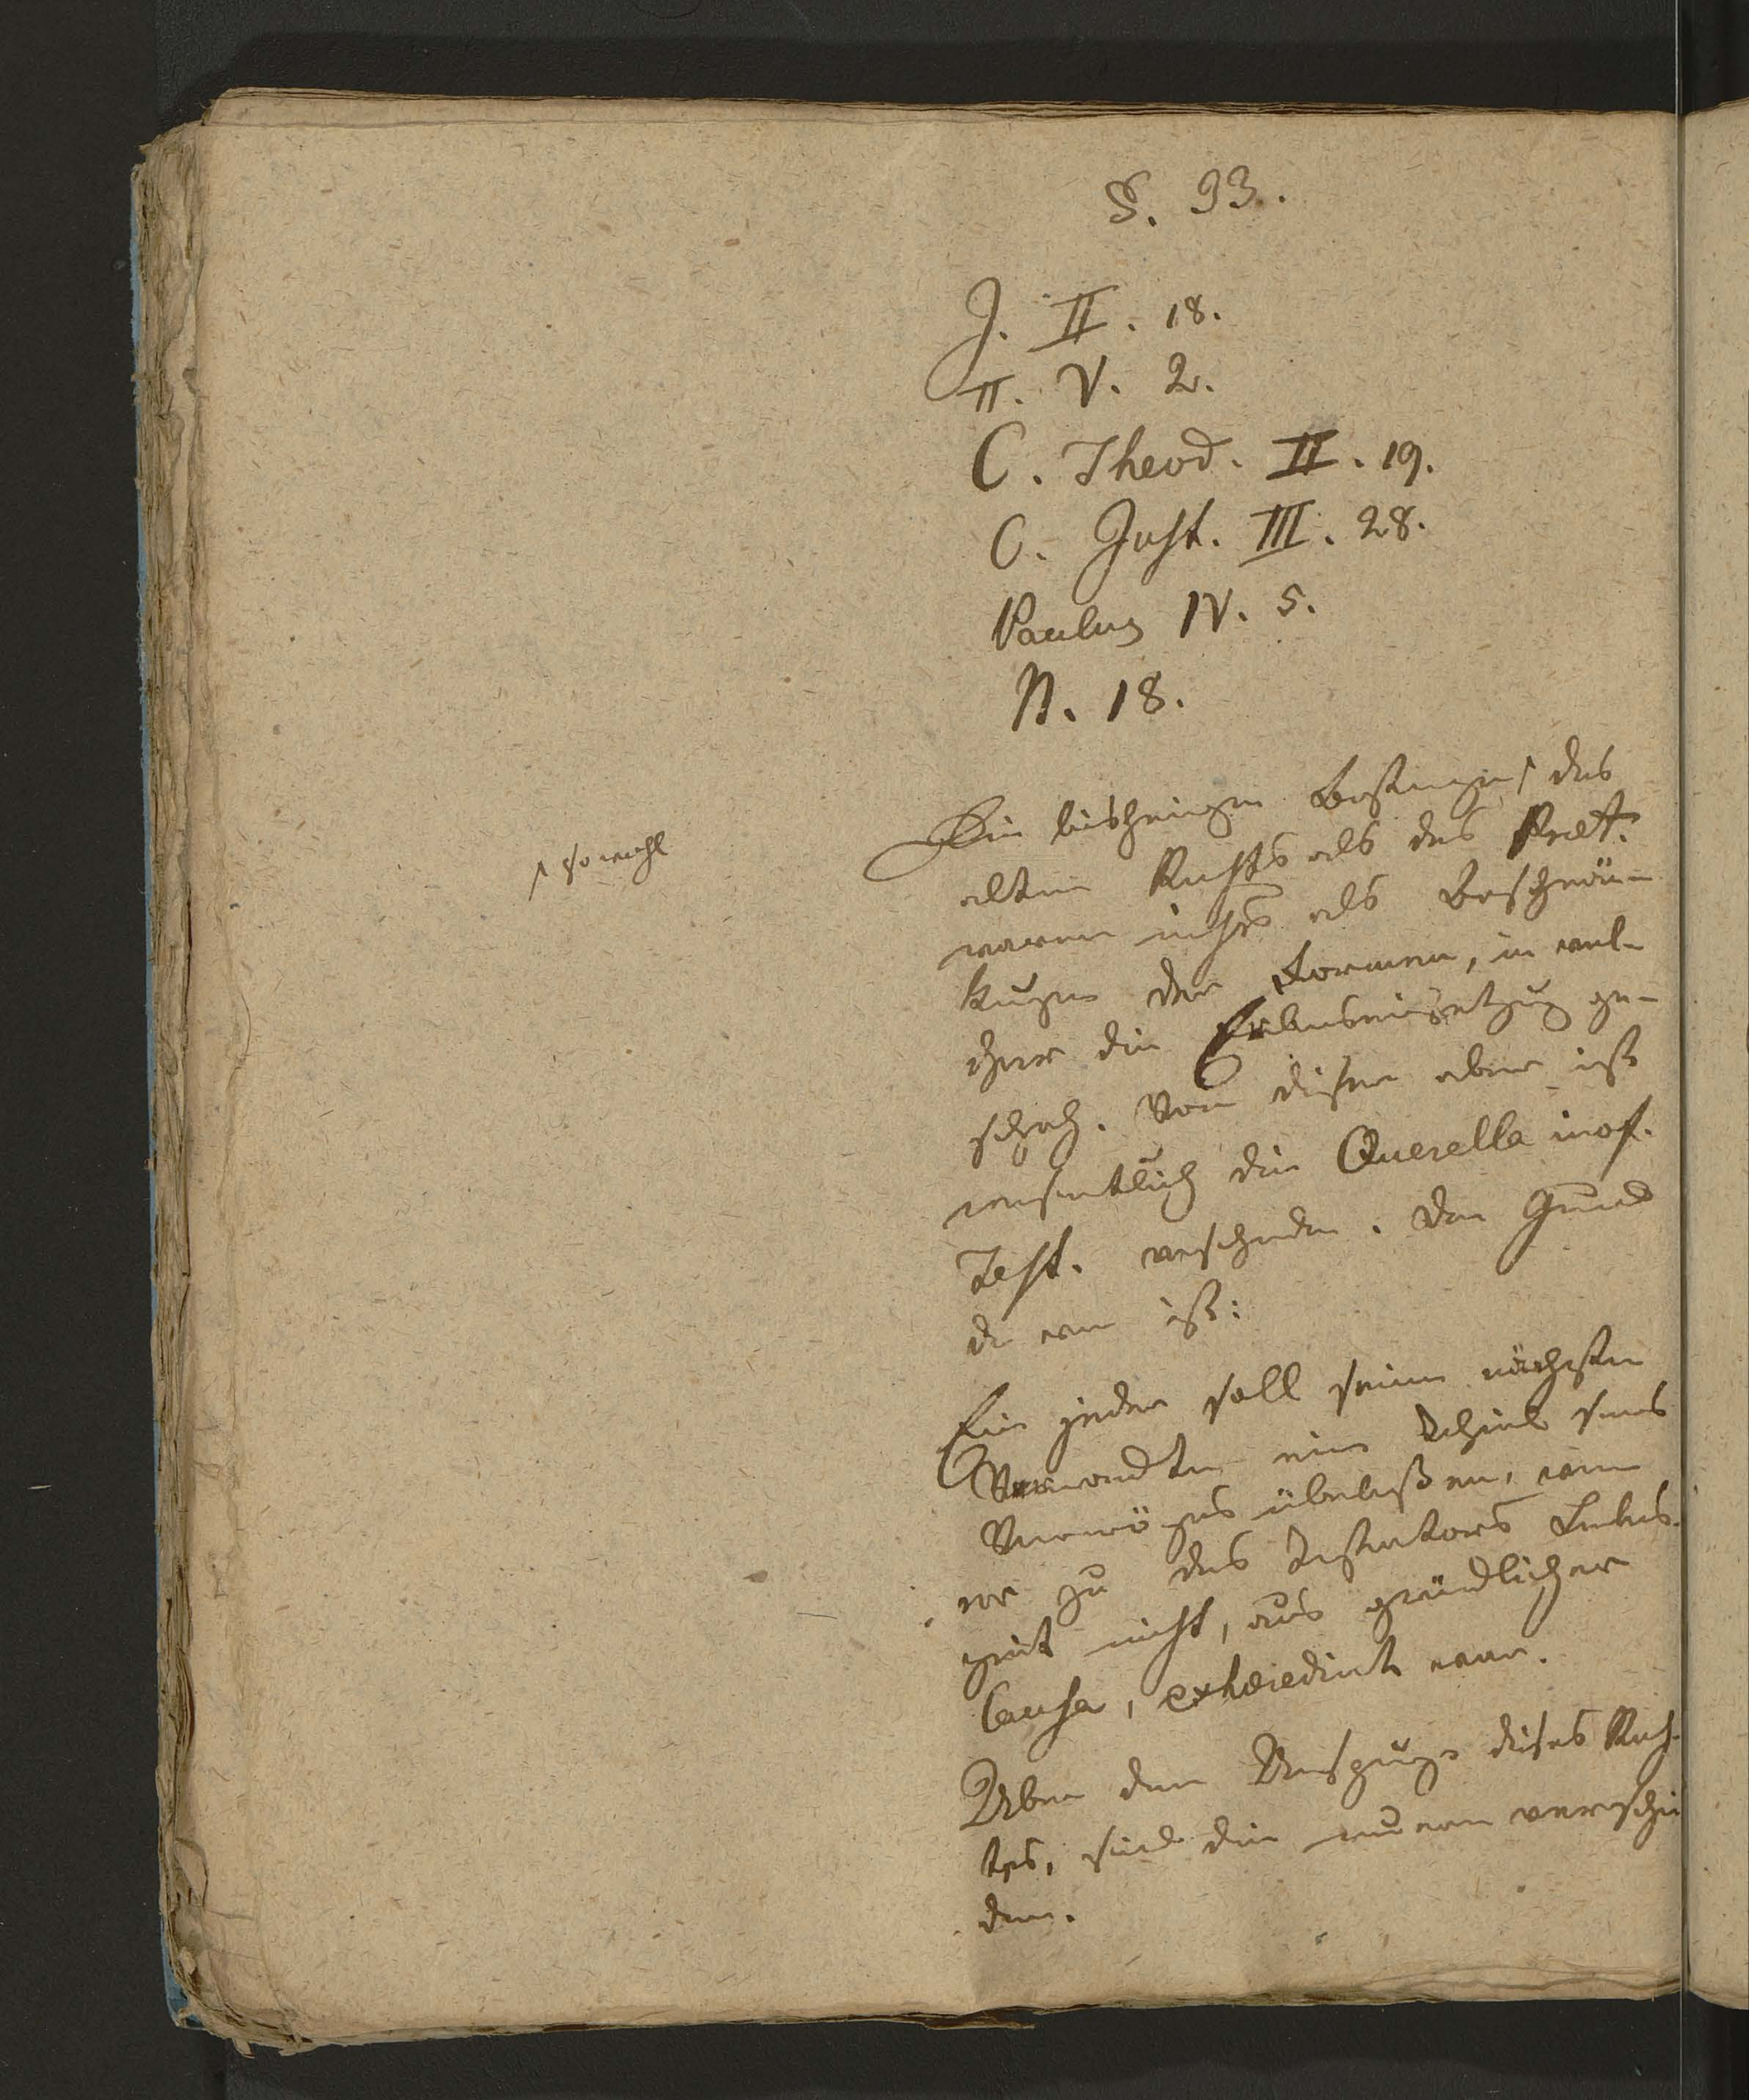 §. 93.
J. II. 18.
π. V. 2.
C. Theod. II. 19.
C. Just. III. 28.
Paulus IV. 5.
N. 18.
Die bisherigen ↑ des
↑ sowohl
alten Rechts als des Praet.
waren nichts als Beschrän-
kungen der Formen, in wel-
cher die Erbenseinsetzung ge-
schah. Von diesen aber ist
wesentlich die Querella inof.
Test. verschieden. Der Grund
davon ist:
Ein jeder soll seinen nächsten
Verwandten einen Theil seines
Vermögens überlaßen, wenn
er zu des Testators Lebens-
zeit nicht, aus gründlicher
Causa, exhaeredirt war.
Über den Ursprung dieses Rech-
tes, sind die verschie
den.